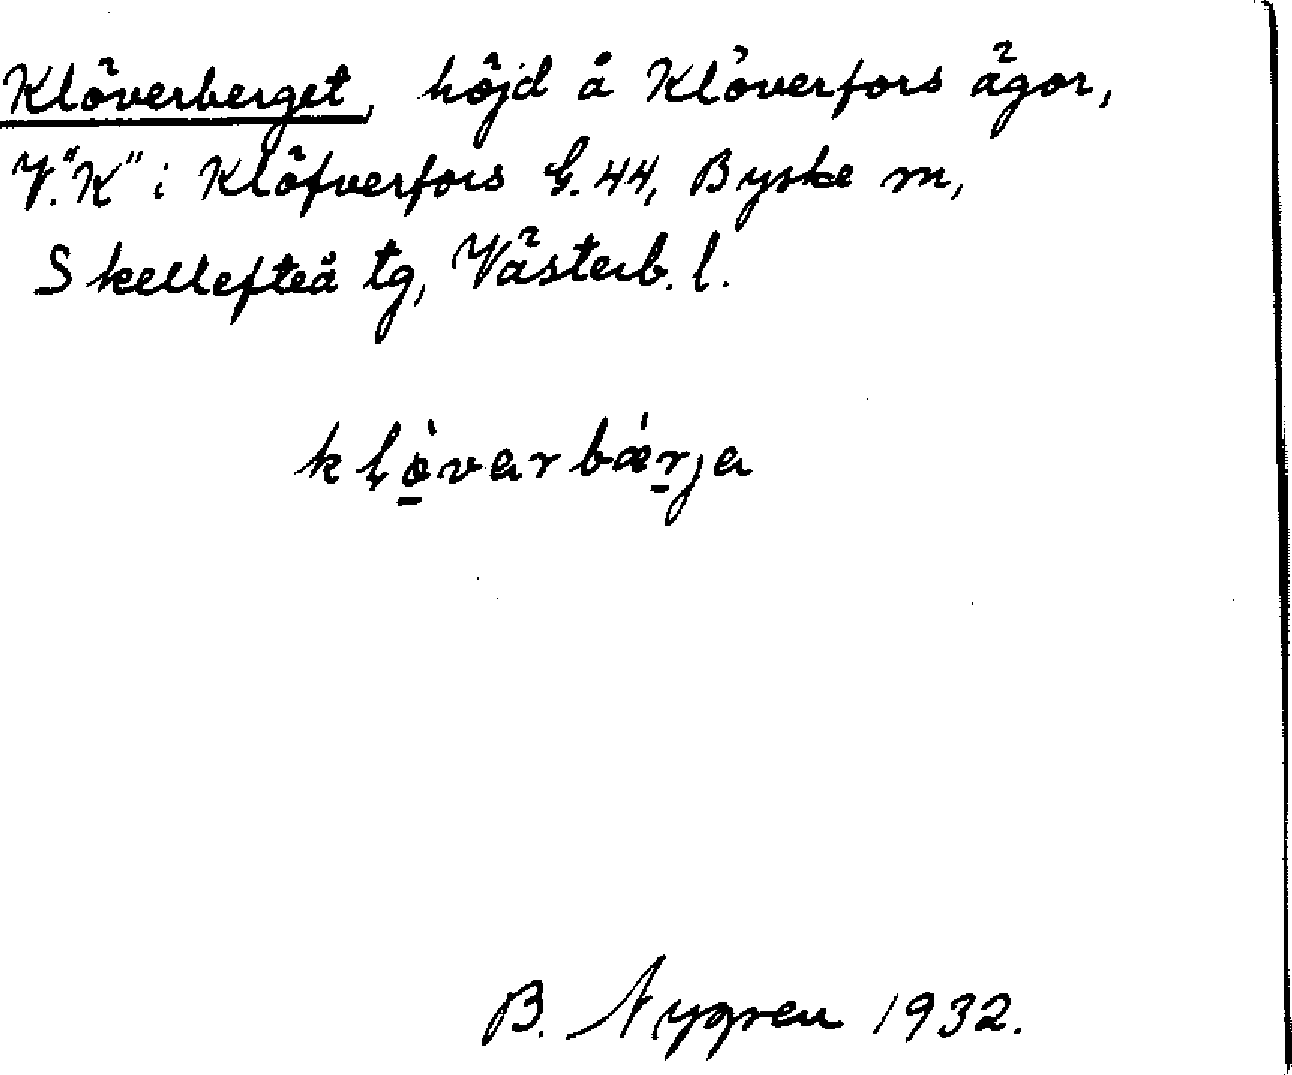 Klöverberget, höjd å Klöverfors ägor,
V. "K" i Klöfverfors G. 44, Byske sn,
Skellefteå tg, Västerb. l.
klø̱̀varbæ̀ṟja
B. Nygren 1932.